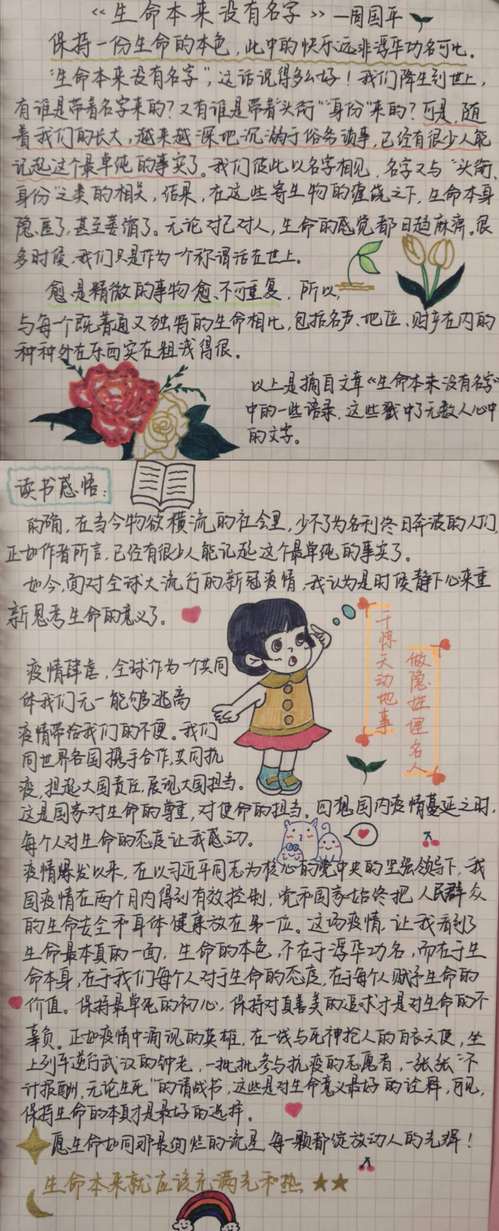 《生命本来没有名字》—周国平
保持一份生命的本色，此中的快乐远非浮华功名可比。
“生命本来没有名字”，这话说得多么好！我们降生到世上，
有谁是带着名字来的？又有谁是带着“头衔”“身份”来的？可是，随
着我们的长大，越来越深地沉溺于俗务琐事，已经有很少人能
记起这个最单纯的事实了。我们彼此以名字相见，名字又与“头衔、
身份”之类的相关，结果，在这些寄生物的缠绕之下，生命本身
隐匿了，甚至萎缩了。无论对己对人，生命的感觉都日趋麻痹。很
多时候，我们只是作为一个称谓活在世上。
愈是精微的事物愈不可重复，所以，
与每个既普通又独特的生命相比，包括名声、地位、财产在内的
种种外在东西实在粗浅得很。
以上是摘自文章《生命本来没有名字》
中的一些语录，这些戳中了无数人心中
的文字。
读书感悟：
的确，在当今物欲横流的社会里，少不了为名利终日奔波的人们
正如作者所言，已经有很少人能记起这个最单纯的事实了。
如今，面对全球大流行的新冠疫情，我认为是时候静下心来重
新思考生命的意义了。
干惊天动地事
做隐姓埋名人
疫情肆虐，全球作为一个共同
体我们无一能够逃离
疫情带给我们的不便。我们
同世界各国携手合作，共同抗
疫，担起大国责任，展现大国担当。
这是国家对生命的尊重，对使命的担当。回想国内疫情蔓延之时，
每个人对生命的态度让我感动。
疫情爆发以来，在以习近平同志为核心的党中央的坚强领导下，我
国疫情在两个月内得到有效控制，党和国家始终把人民群众
的生命安全和身体健康放在第一位。这场疫情，让我看到了
生命最本真的一面，生命的本色，不在于浮华功名，而在于生
命本身，在于我们每个人对于生命的态度，在于每个人赋予生命的
价值。保持最单纯的初心，保持对真善美的追求才是对生命的不
辜负。正如疫情中涌现的英雄，在一线与死神抢人的白衣天使，坐
上列车逆行武汉的钟老，一批批参与抗疫的志愿者，一张张“不
计报酬，无论生死”的请战书，这些是对生命意义最好的诠释，可见，
保持生命的本真才是最好的选择。
愿生命如同那最绚烂的流星，每一颗都绽放动人的光辉！
生命本来就应该充满光和热